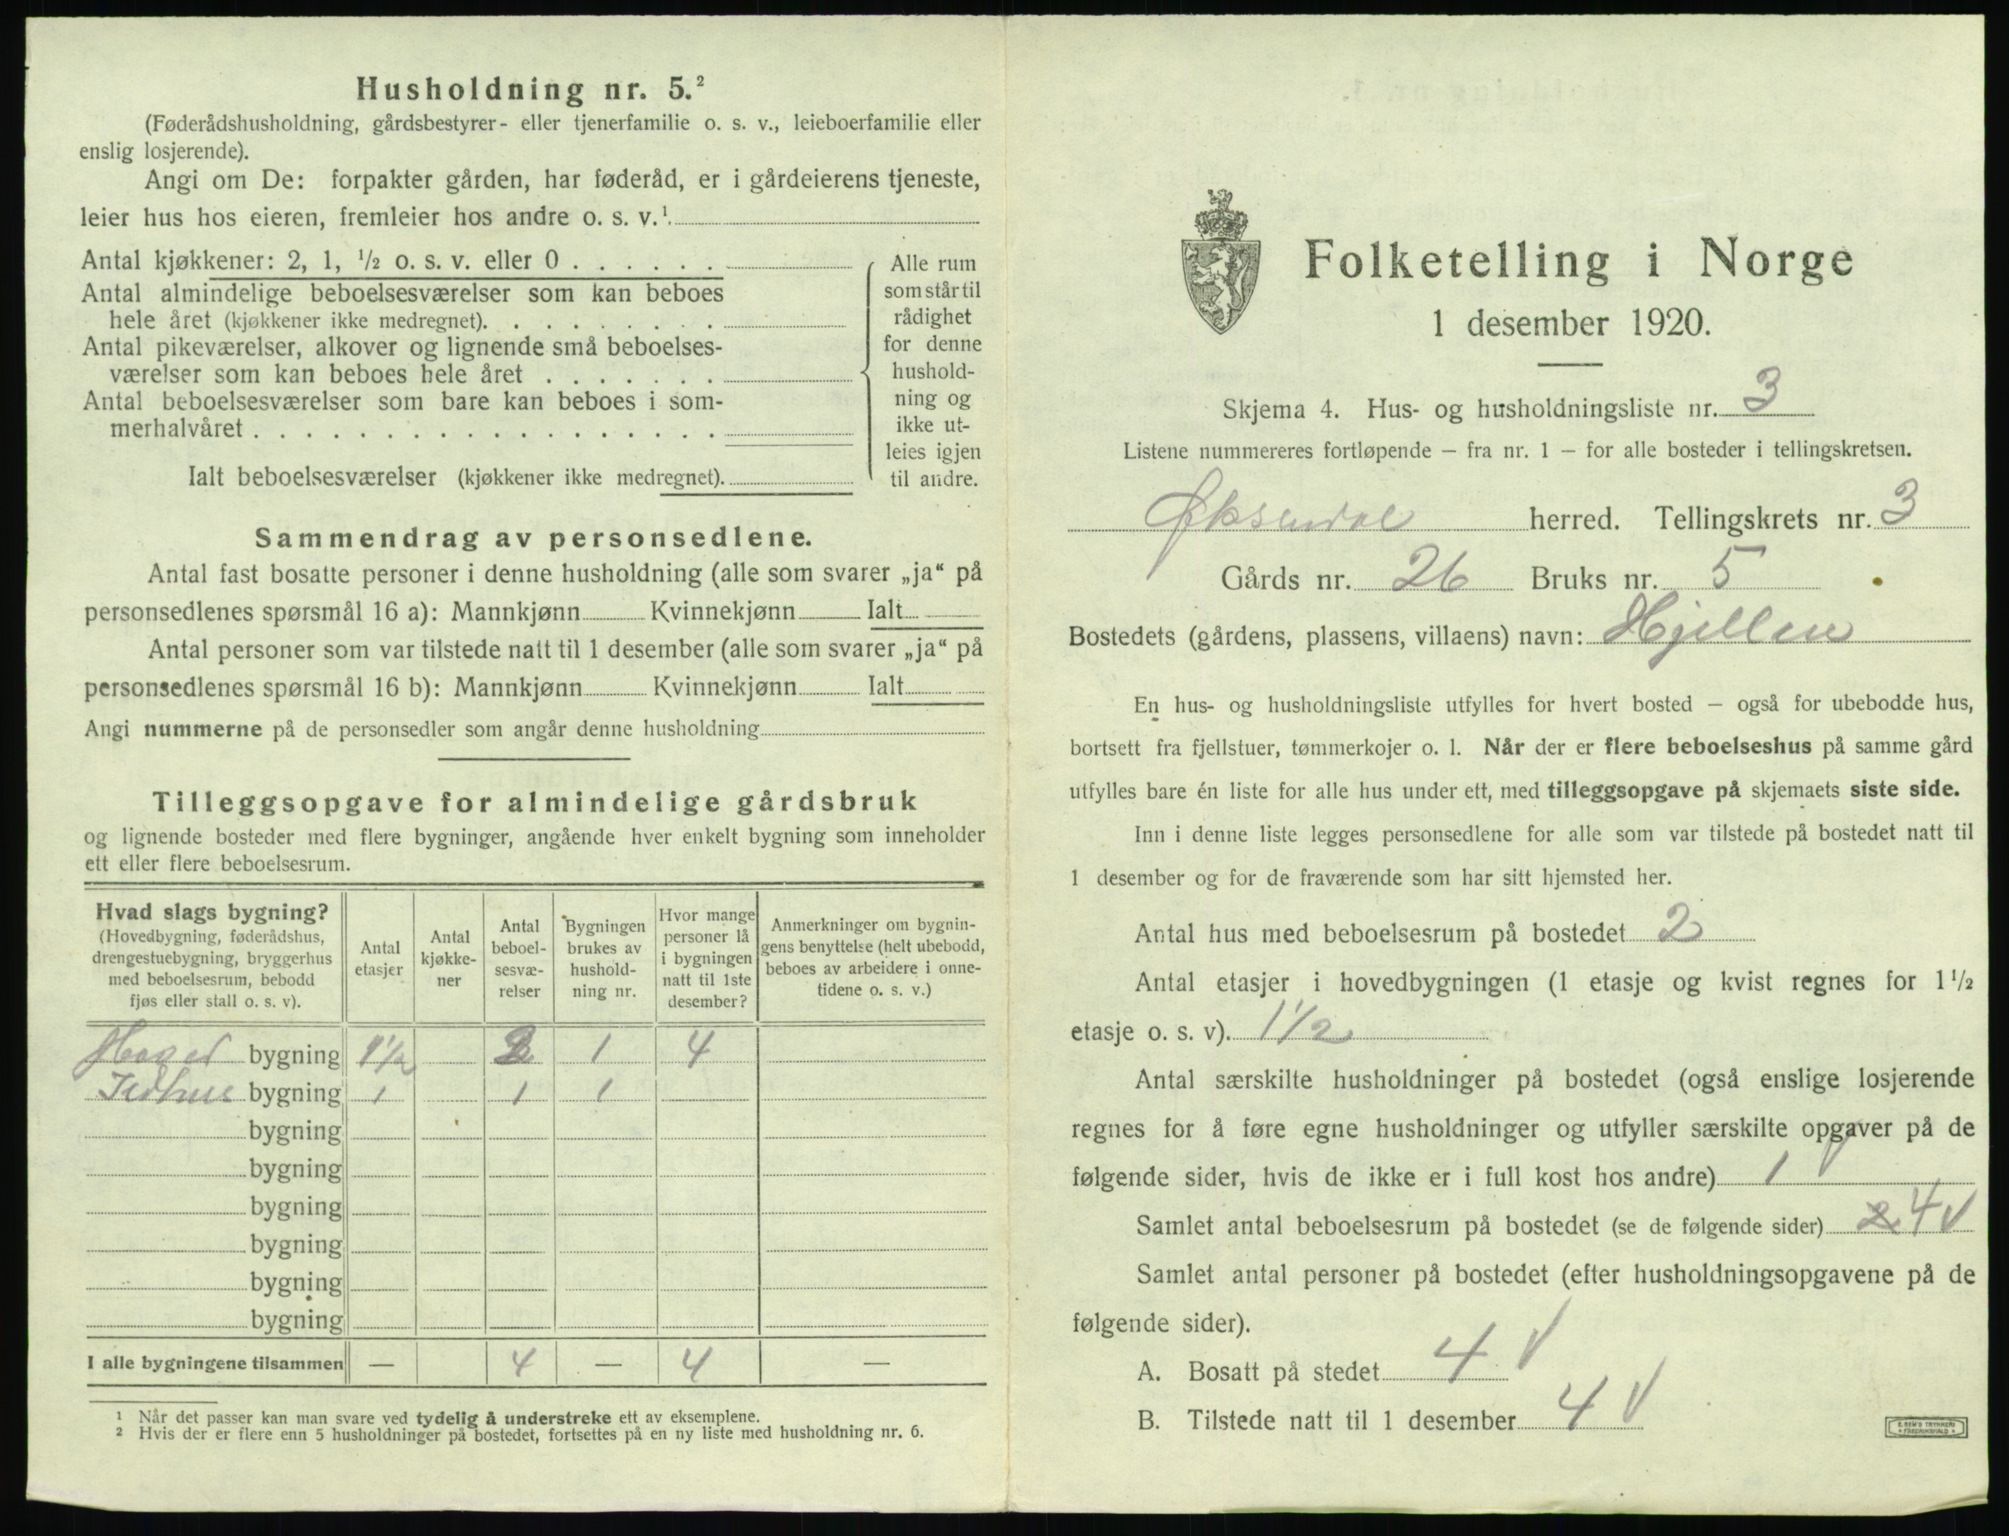 Husholdning nr. 5.²
(Føderådshusholdning, gårdsbestyrer- eller tjenerfamilie o. s. v., leieboerfamilie eller
enslig losjerende).
Angi om De: forpakter gården, har føderåd, er i gårdeierens tjeneste,
leier hus hos eieren, fremleier hos andre o. s. v.¹
Antal kjøkkener: 2, 1, ½ o. s. v. eller 0
Antal almindelige beboelsesværelser som kan beboes
hele året (kjøkkener ikke medregnet).
Antal pikeværelser, alkover og lignende små beboelses-
værelser som kan beboes hele året
Antal beboelsesværelser som bare kan beboes i som-
merhalvåret
Ialt beboelsesværelser (kjøkkener ikke medregnet).
Alle rum
som står til
rådighet
for denne
hushold-
ning og
ikke ut-
leies igjen
til andre.
Sammendrag av personsedlene.
Antal fast bosatte personer i denne husholdning (alle som svarer „ja“ på
personsedlenes spørsmål 16 a): Mannkjønn Kvinnekjønn Ialt
Antal personer som var tilstede natt til 1 desember (alle som svarer „ja“ på
personsedlenes spørsmål 16 b): Mannkjønn Kvinnekjønn Ialt
Angi nummerne på de personsedler som angår denne husholdning
Tilleggsopgave for almindelige gårdsbruk
og lignende bosteder med flere bygninger, angående hver enkelt bygning som inneholder
ett eller flere beboelsesrum.
Hvad slags bygning?
(Hovedbygning, føderådshus,
drengestuebygning, bryggerhus
med beboelsesrum, bebodd
fjøs eller stall o. s. v).
Antal
etasjer
Antal
kjøkke-
ner
Antal
beboel-
sesvæ-
relser
Bygningen
brukes av
hushold-
ning nr.
Hvor mange
personer lå
i bygningen
natt til 1ste
desember?
Anmerkninger om bygnin-
gens benyttelse (helt ubebodd,
beboes av arbeidere i onne-
tidene o. s. v.)
bygning 1½ 1 4
Ildhus bygning 1 1 1
bygning
bygning
bygning
bygning
bygning
bygning
I alle bygningene tilsammen — 4 — 4 —
¹ Når det passer kan man svare ved tydelig å understreke ett av eksemplene.
² Hvis der er flere enn 5 husholdninger på bostedet, fortsettes på en ny liste med husholdning nr. 6.
Folketelling i Norge
1 desember 1920.
Skjema 4. Hus- og husholdningsliste nr. 3
Listene nummereres fortløpende – fra nr. 1 – for alle bosteder i tellingskretsen.
Øksendal herred. Tellingskrets nr. 3
Gårds nr. 26 Bruks nr. 5
Bostedets (gårdens, plassens, villaens) navn: Hjellen
En hus- og husholdningsliste utfylles for hvert bosted – også for ubebodde hus,
bortsett fra fjellstuer, tømmerkojer o. l. Når der er flere beboelseshus på samme gård
utfylles bare én liste for alle hus under ett, med tilleggsopgave på skjemaets siste side.
Inn i denne liste legges personsedlene for alle som var tilstede på bostedet natt til
1 desember og for de fraværende som har sitt hjemsted her.
Antal hus med beboelsesrum på bostedet 2
Antal etasjer i hovedbygningen (1 etasje og kvist regnes for 1½
etasje o. s. v). 1½
Antal særskilte husholdninger på bostedet (også enslige losjerende
regnes for å føre egne husholdninger og utfyller særskilte opgaver på de
følgende sider, hvis de ikke er i full kost hos andre) 1 √
Samlet antal beboelsesrum på bostedet (se de følgende sider) 2 4 √
Samlet antal personer på bostedet (efter husholdningsopgavene på de
følgende sider).
A. Bosatt på stedet 4 √
B. Tilstede natt til 1 desember 4 √
E. SEM'S TRYKKERI
FREDRIKSHALD